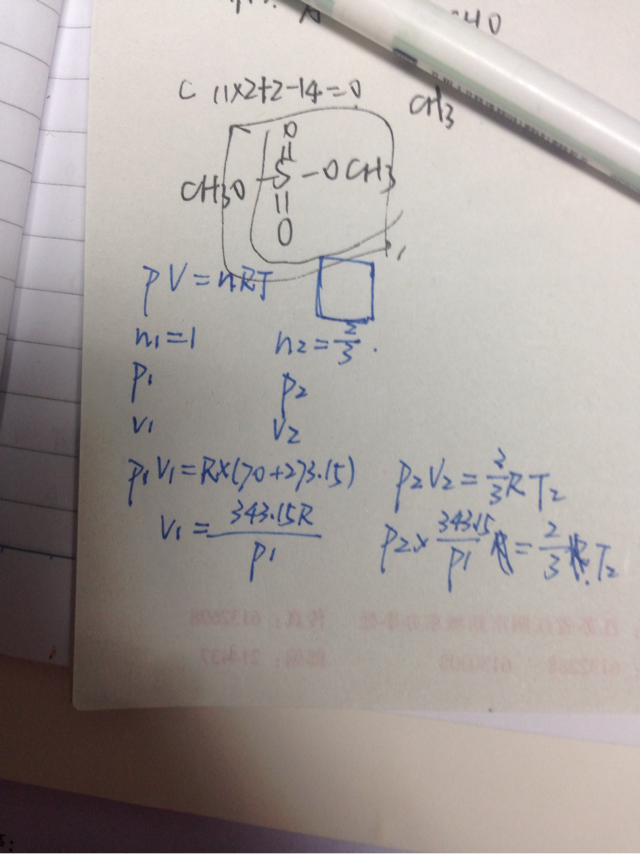 C 11×2+2-14=0
CH3
O
CH3O-S-OCH3
O
pV=nRT
n1=1 n2=2/3.
p1 p2
v1 v2
p1V1=R×(70+273.15) p2V2=2/3RT2
V1=343.15R/p1 p2×343.15/p1 R=2/3R.T2
传真：6132608